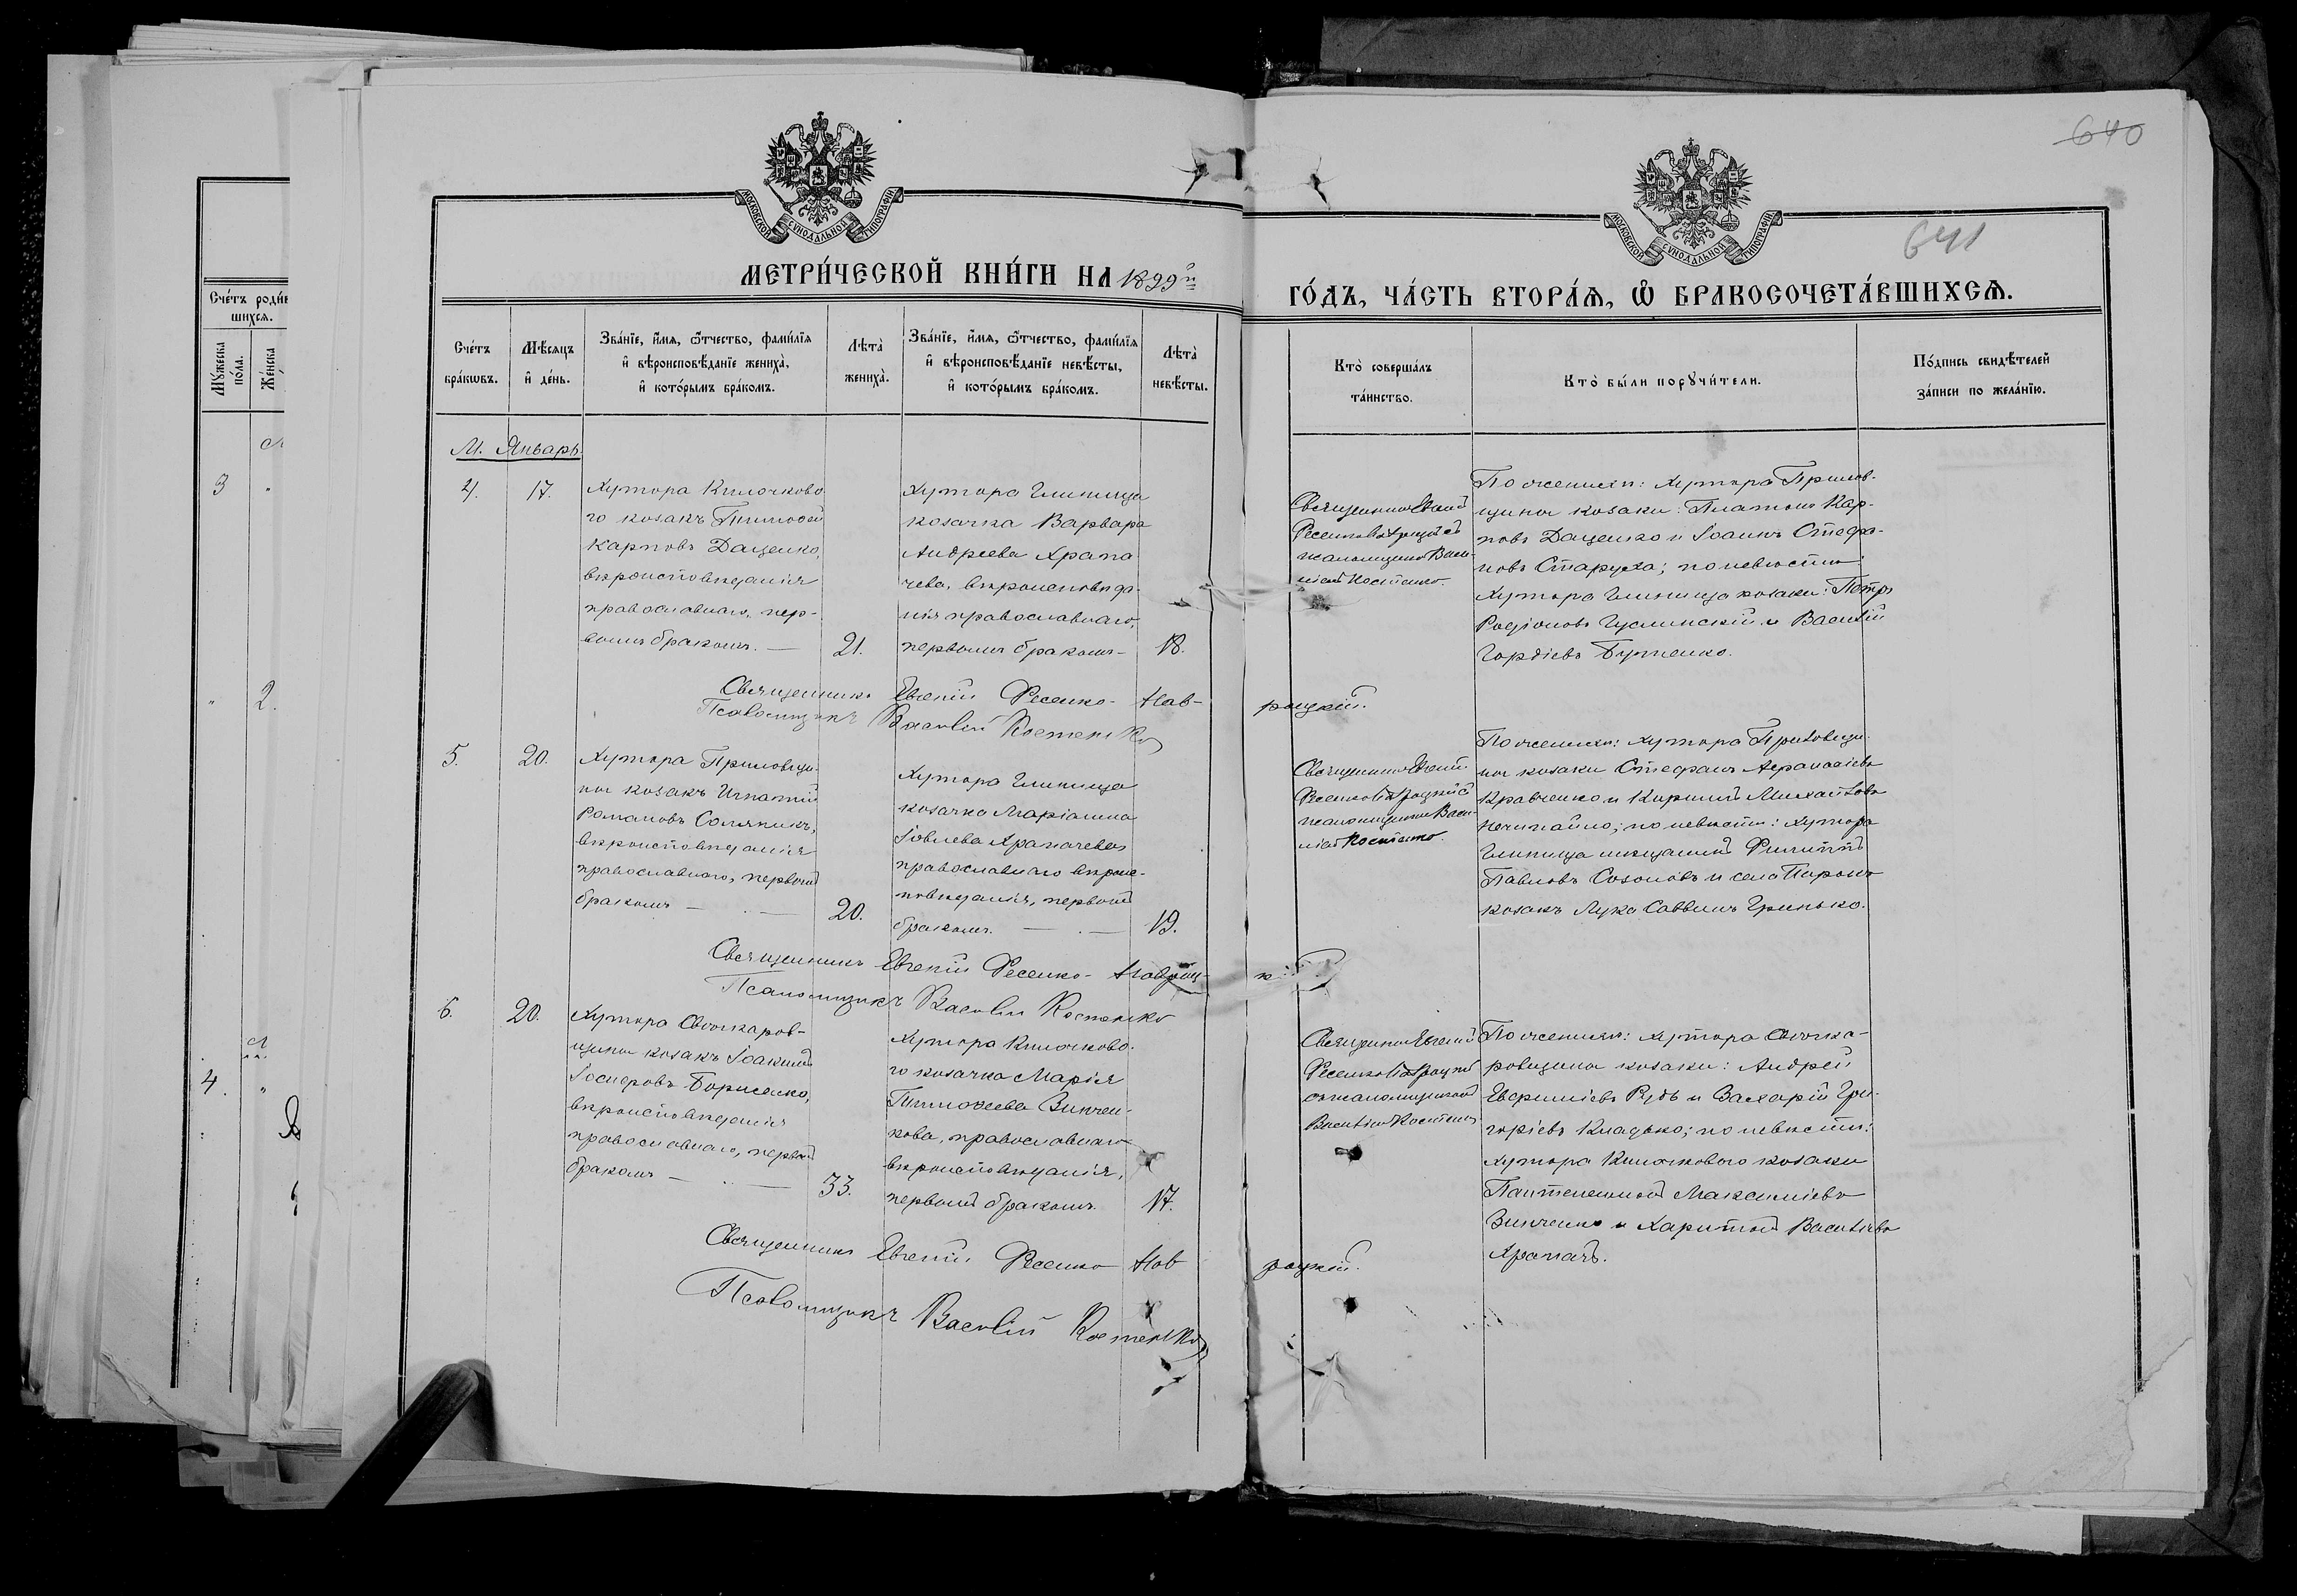 640
641
МОСКОВСКОЙ СѴНОДАЛЬНОЙ ТИПОГРАФІИ
МОСКОВСКОЙ СѴНОДАЛЬНОЙ ТИПОГРАФІИ
МЕТРИ́ЧЕСКОЙ КНИ́ГИ НА 1899й
ГО́ДЪ, ЧА́СТЬ ВТОРА́Я, Ѽ БРАКОСОЧЕТА́ВШИХСЯ.
Сче́тъ роди́в
шихся.
Му́жеска по́ла.
Же́нска
Сче́тъ бра́ковъ.
Мѣ́сяцъ и де́нь.
Зва́нїе, и́мя, ѻ҆́тчество, фами́лїя и вѣроисповѣ́данїе жениха̀, и кото́рымъ бра́комъ.
Лѣта̀ жениха̀.
Зва́нїе, и́мя, ѻ҆́тчество, фами́лїя и вѣроисповѣ́данїе невѣ́сты, и кото́рымъ бра́комъ.
Лѣта̀ невѣ́сты.
Кто̀ соверша́лъ та́инство.
Кто̀ бы́ли порꙋчи́тели.
По́дпись свидѣ́телей за́писи по жела́нїю.
3
2.
4.
М. Январь.
4.
17.
Хутора Климочково
го козакъ Тимофей
Карповъ Даценко,
вѣроисповѣданія
православнаго, пер-
вымъ бракомъ. —
21.
Хутора Глинища
козачка Варвара
Андреева Храпа
чева, вѣроисповѣда-
нія православнаго,
первымъ бракомъ —
18.
Священникъ Евгеній
Ѳесенко-Навроцкій съ
псаломщикомъ Васи-
ліемъ Костенко.
По женихѣ: хутора Прилов-
щины козаки: Платонъ Кар-
повъ Даценко и Іоаннъ Стефа-
новъ Старуха; по невѣстѣ:
Хутора Глинища козаки: Петръ
Родіоновъ и Василій
Гордіевъ Бутенко.
Священникъ Евгеній Ѳесенко-Нав-роцкій.
Псаломщикъ Василій Костенко
5.
20.
Хутора Приловщи-
ны козакъ Игнатій
Романовъ Соляникъ,
вѣроисповѣданія
православнаго, первымъ
бракомъ —
20.
Хутора Глинища
козачка Маріанна
Іовлева Храпачева
православнаго вѣроис-
повѣданія, первымъ
бракомъ. —
19.
Священникъ Евгеній
Ѳесенко Навроцкій съ
псаломщикомъ Васи-
ліемъ Костенко.
По женихѣ: хутора Приловщи-
ны козаки Стефанъ Аѳанасіевъ
Кравченко и Кириллъ Михайловъ
Нечитайло; по невѣстѣ: хутора
Глинища мѣщанинъ Филиппъ
Павловъ Созоновъ и села Пирокъ
козакъ Лука Саввинъ Гринько.
Священникъ Евгеній Ѳесенко-Навроц-
Псаломщикъ Василій Костенко
6.
20.
Хутора
щины козакъ Іоакимъ
Борисенко,
вѣроисповѣданія
православнаго, первымъ
бракомъ —
33.
Хутора Климочково-
го козачка Марія
Тимоѳеева Зинчен-
кова, православнаго
вѣроисповѣданія,
первымъ бракомъ.
17.
Священникъ Евгеній
Ѳесенко Навроцкій
съ псаломщикомъ
Василіемъ Костенко
По женихѣ: хутора
козаки: Андрей
Рудь и Захарій Гри-
горіевъ Кладько; по невѣстѣ:
хутора Климочкового козаки
Пантелеимонъ Максиміевъ
Зинченко и Харитонъ Васильевъ
Храпачъ.
Священникъ Евгеній Ѳесенко Нав роцкій.
Псаломщикъ Василій Костенко